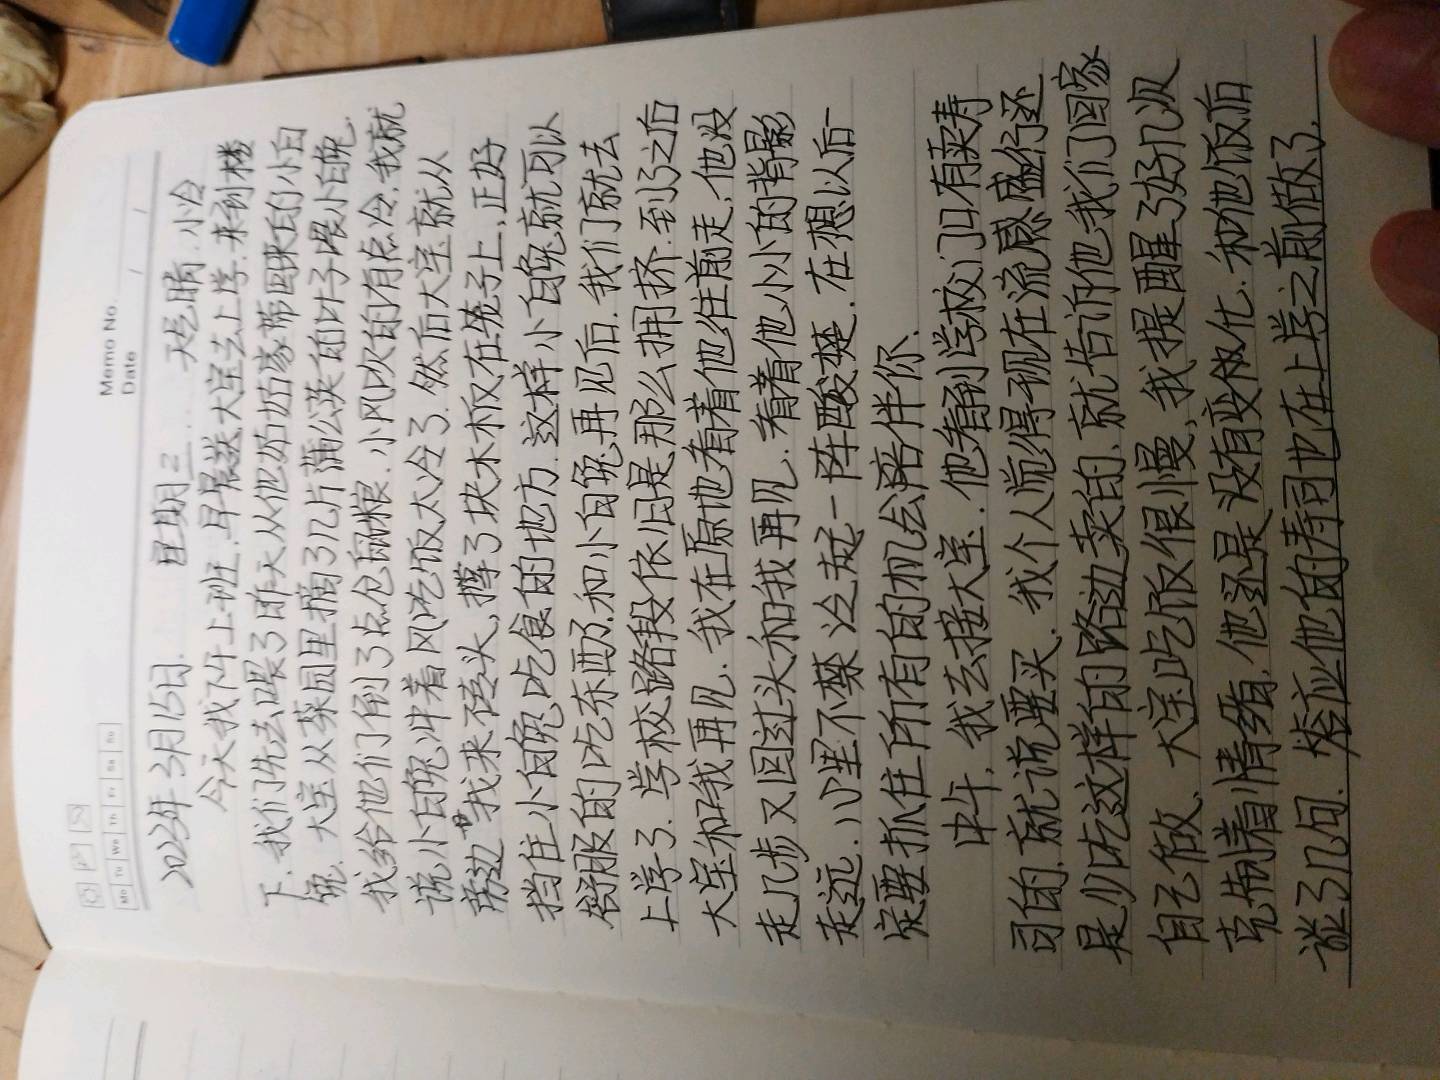 Memo No.
Date / /
Mo Tu We Th Fr Sa Su
2023年3月15日. 星期三... 天气晴.小冷
今天我下午上班,早晨送大宝去上学.来到楼
下.我们先去喂了昨天从他奶奶家带回来的小白
兔.大宝从菜园里摘了几片蒲公英的叶子喂小白兔.
我给他们倒了点仓鼠粮.小风吹的有点冷,我就
说小白兔冲着风吃饭太冷了.然后大宝就从
旁边"我来 头,撑了块木板在笼子上,正好
挡住小白兔吃食的地方.这样小白兔就可以
舒服的吃东西了.和小白兔再见后.我们就去
上学了.学校路段依旧是那么拥挤.到了之后
大宝和我再见.我在原地看着他往前走,他没
走几步又回过头和我再见.看着他小小的背影
走远.心里不禁泛起一阵酸楚.在想以后一
定要抓住所有的机会陪伴你.
中午,我去接大宝.他看到学校门口有卖寿
司的.就说要买.我个人觉得现在流感盛行还
是少吃这样的路边卖的、就告诉他我们回家
自己做、大宝吃饭很慢、我提醒了好几次
克制着情绪,他还是没有变化.和他饭后
谈了几句.答应他的寿司也在上学之前做了.